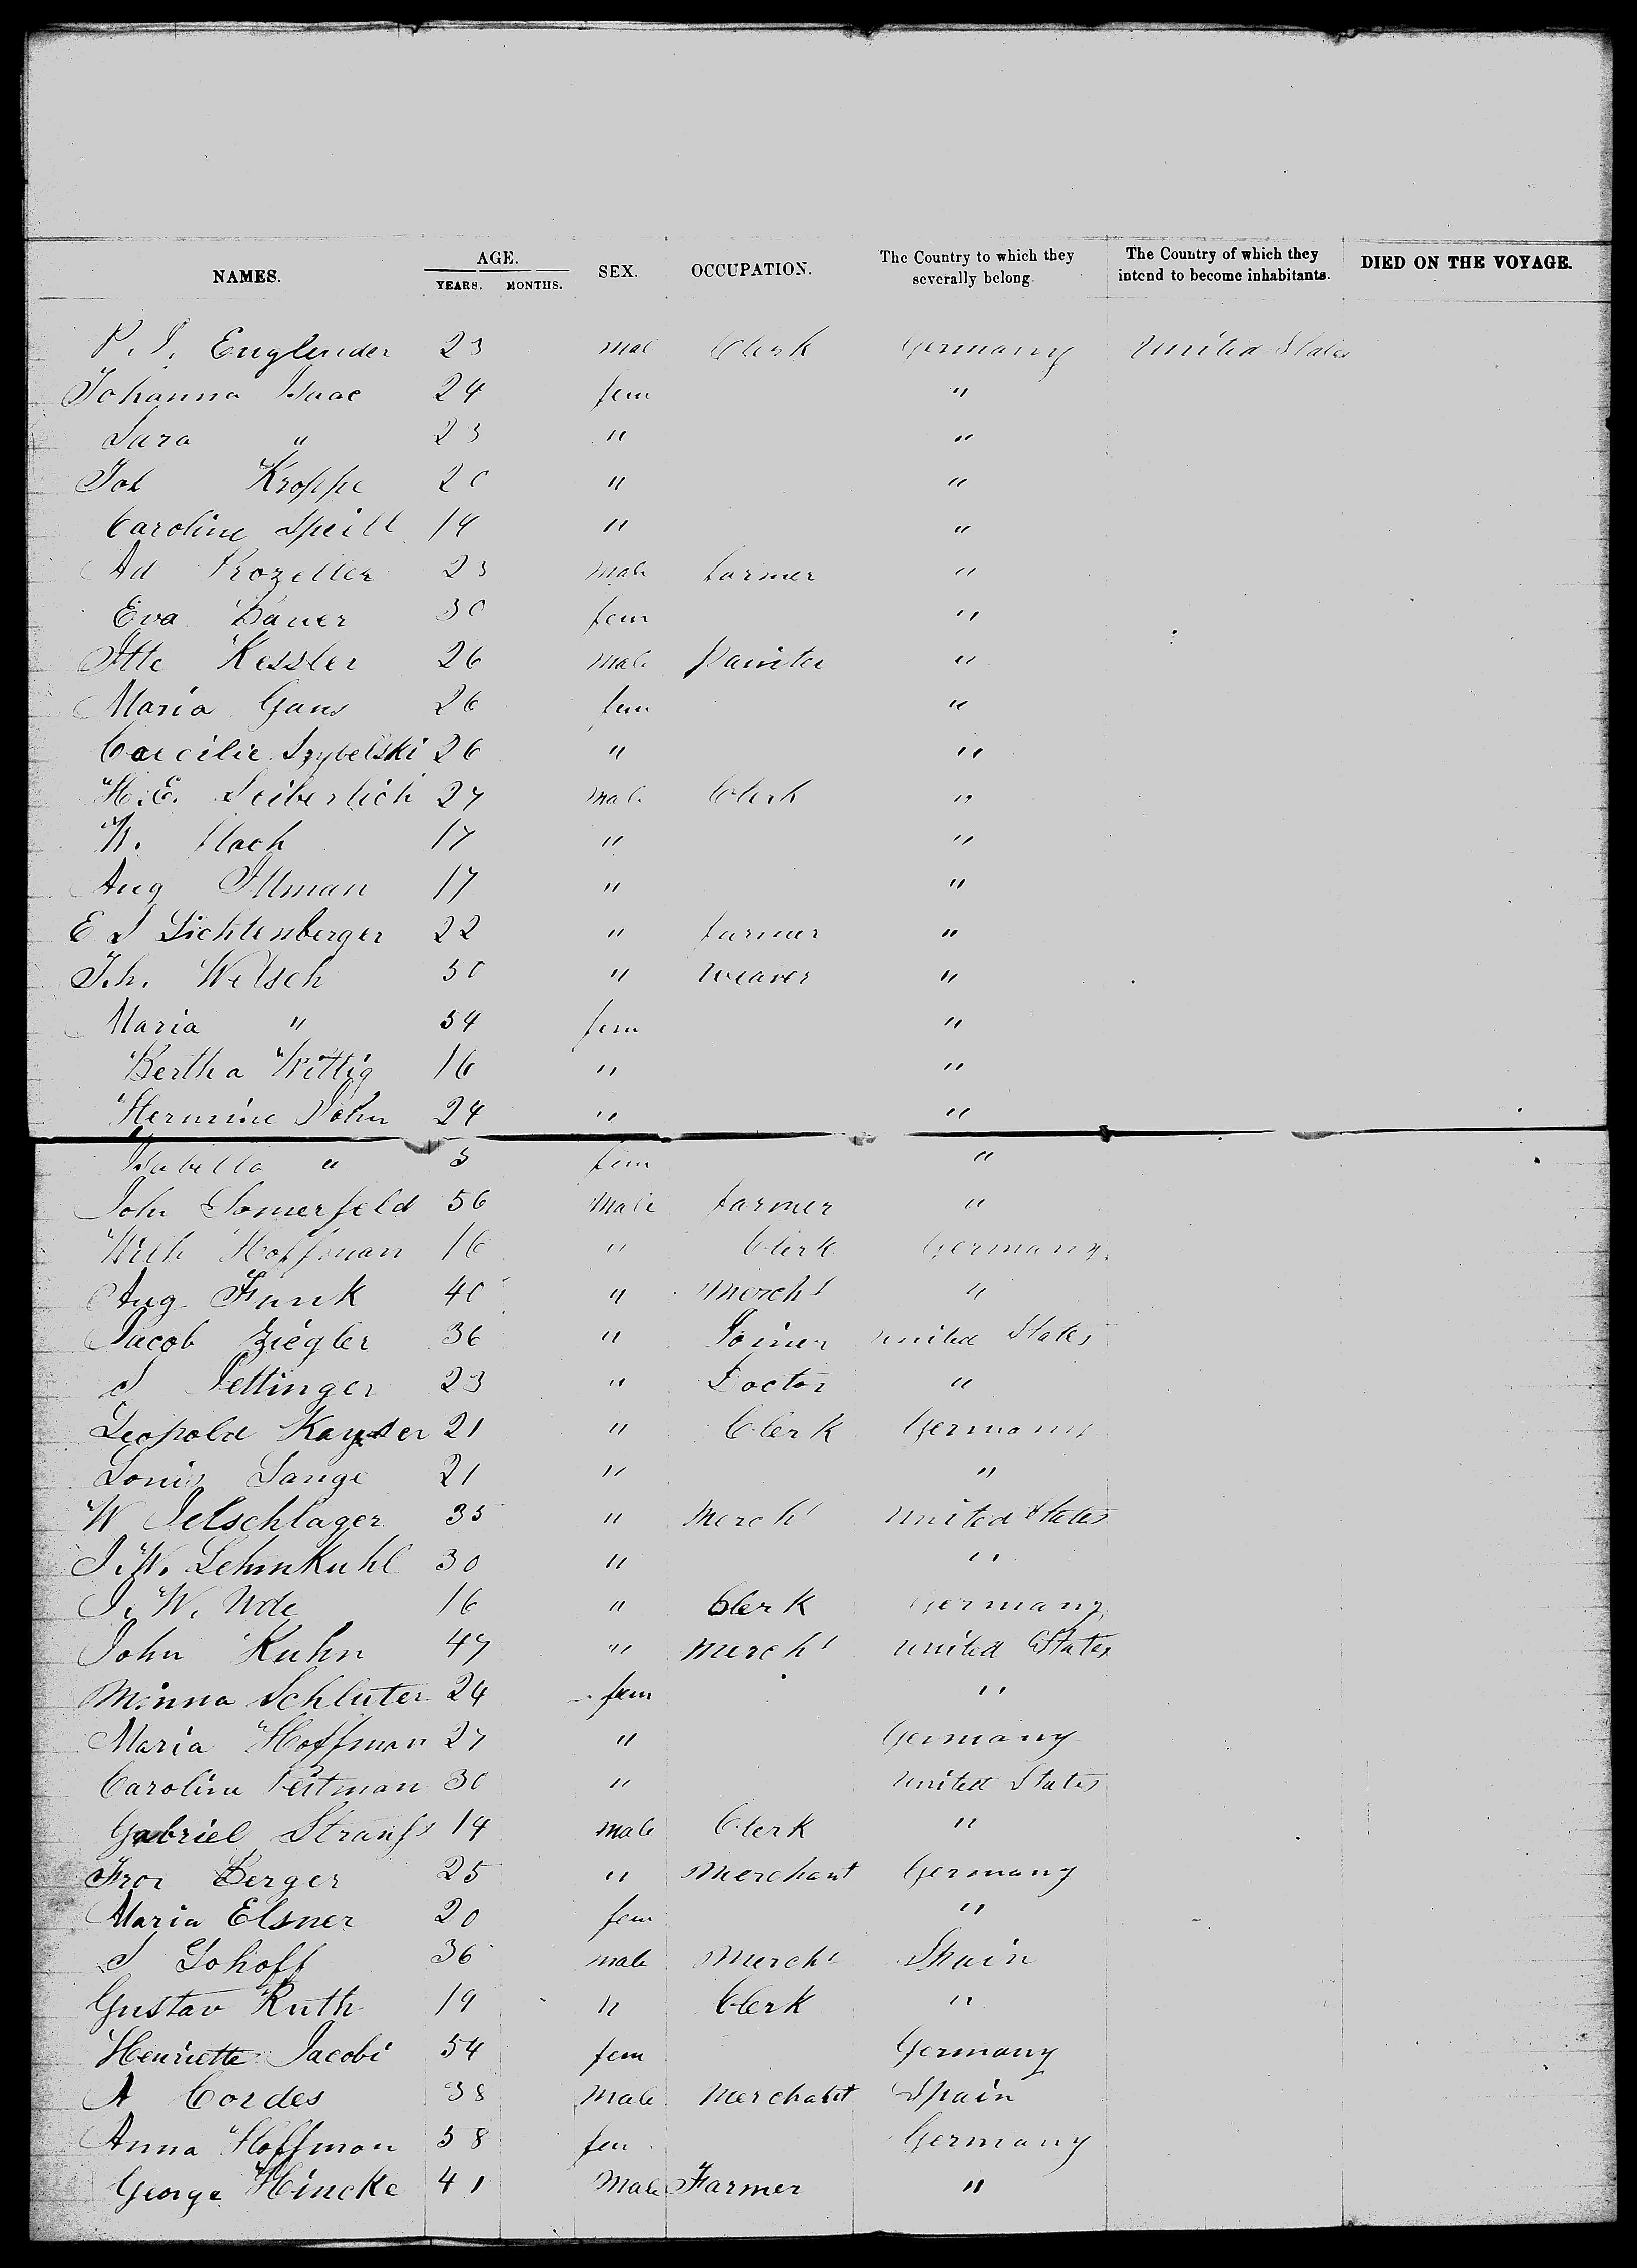 NAMES. AGE. YEARS. MONTHS. SEX. OCCUPATION. The Country to which they severally belong. The Country of which they intend to become inhabitants. DIED ON THE VOYAGE.
P. I. Englender 23 mal Clerk Germany United States
Johanna Isaac 24 fem "
Sara " 23 " "
Joh Kroppe 20 " "
Caroline Speill 14 " "
Ad Prozeller 23 male farmer "
Eva Bauer 30 fem "
Otto Kessler 26 male painter "
Maria Gans 26 fem "
Caecilie Szybelski 26 " "
H. E. Seiberlich 27 male Clerk "
17 " "
Aug Illman 17 " "
E S Lichtenberger 22 " farmer "
Joh. Welsch 50 " weaver "
Maria " 54 fem "
Bertha Wittig 16 " "
Hermine John 24 " "
Isabella " 5 fem "
John Somerfeld 56 male farmer "
Wilh Hoffman 16 " Clerk Germany
Aug. Funk 40 " Mercht "
Jacob Ziegler 36 " Joiner United States
S Pettinger 23 " Doctor "
Leopold Kayser 21 " Clerk Germany
Louis Lange 21 " "
W Oelschlager 35 " Mercht United States
J. W. Lehmkuhl 30 " "
J. W. Ude 16 " Clerk Germany
John Kuhn 47 " mercht United States
Minna Schluter 24 fem "
Maria Hoffman 27 " Germany
Caroline Feitman 30 " United States
Gabriel Strauss 14 male Clerk "
Berger 25 " Merchant Germany
Maria Elsner 20 fem "
S Lohoff 36 male Mercht Spain
Gustav Ruth 19 " Clerk "
Henriette Jacobi 54 fem Germany
A Cordes 38 male Merchant Spain
Anna Hoffman 58 fem Germany
George Hincke 41 Male Farmer "